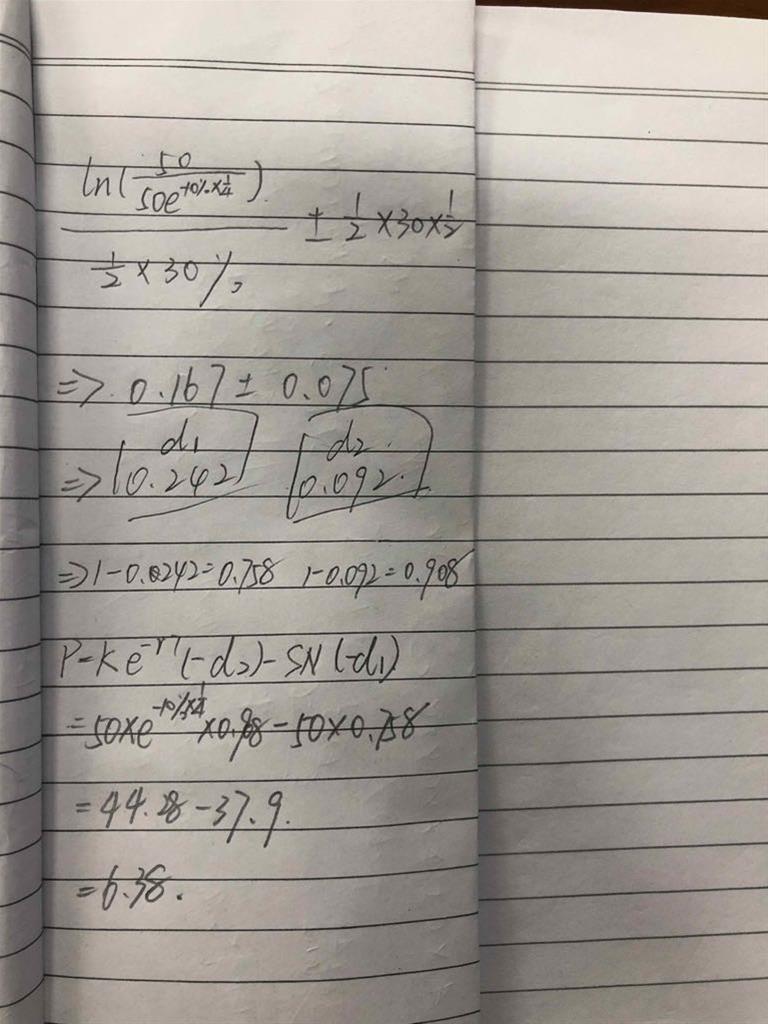 ln(50/50e^-10%×1/4) / 1/2×30% ± 1/2×30×1/2
=> 0.167 ± 0.075
d1 d2
=> 0.242 0.092
=> 1-0.0242=0.758 1-0.092=0.908
P=Ke^-rT(-d2)-SN(-d1)
=50×e^-10%×1/4×0.98-50×0.758
=44.28-37.9.
=6.38.